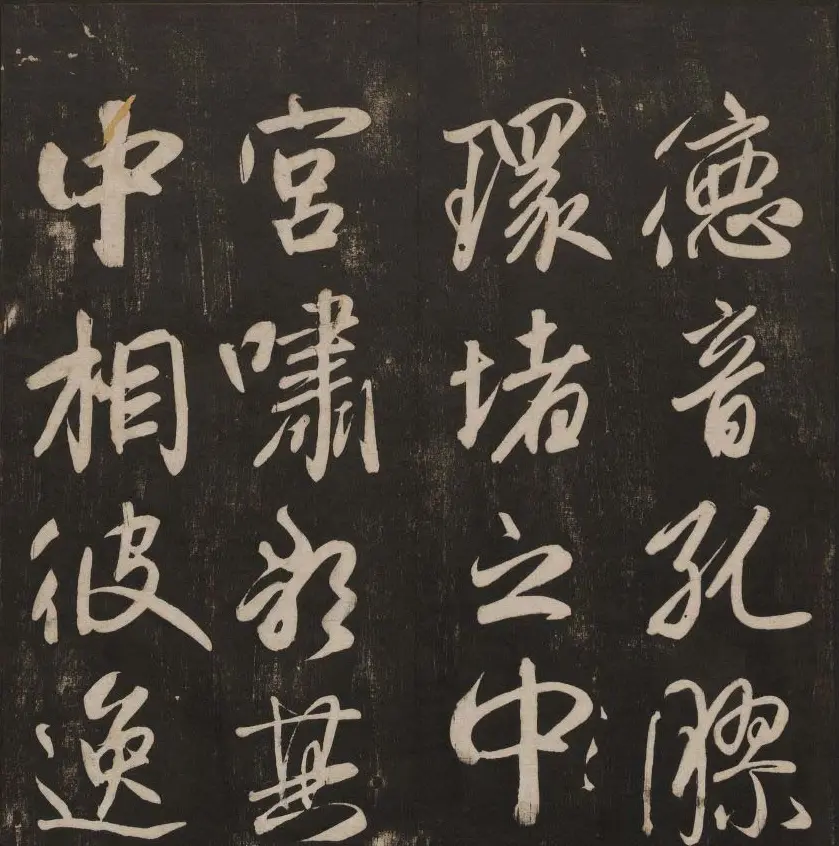 德音孔膠
環堵之中
宮嘯歌其
中相彼逸